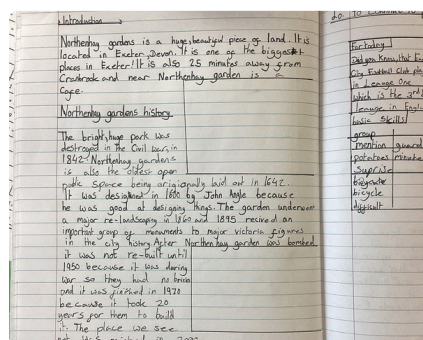 Introduction
Northenhay gardens is a huge, beautiful piece of land. It is
located in Exeter, Devon. It is one of the biggest
places in Exeter! It is also 25 minutes away from
Cranbrook and near Northenhay garden is a
Cafe.
Northenhay gardens history
The bright, huge park was
destroyed in The Civil War, in
1842 Northenhay gardens
is also the oldest open
public space being origionally laid out in 1642.
It was designed in 1600 by John Angle because
he was good at designing things. The garden underwent
a major re-landscaping in 1860 and 1895 recived an
important group of monuments to major victoria figures
in the city history. After Northenhay garden was bombed
it was not re-built until
1950 because it was during
war so they had no bricks
and it was finished in 1970
because it took 20
years for them to build
it. The place we see
Fact
Did you know, that
City Football Club
in League One
which is the 3rd
league in
basic skills
group
mention guard
potatoes minute
suprise
bicycle
difficult